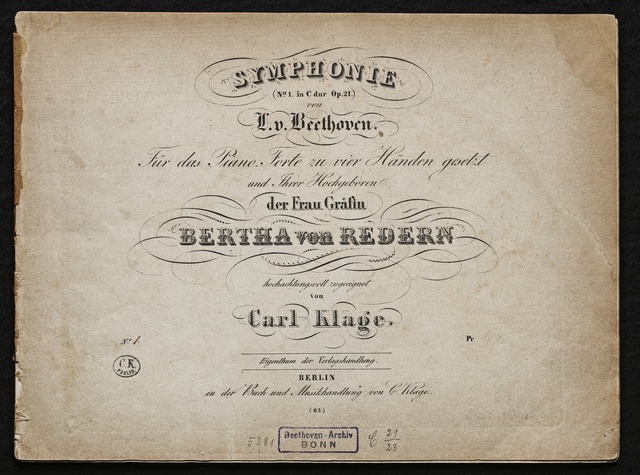 SYMPHONIE
(No 1. in C dur Op. 21.)
von
L. v. Beethoven.
Für das Piano-Forte zu vier Händen gesetzt
und Ihrer Hochgeboren
der Frau Gräfin
BERTHA von REDERN
hochachtungsvoll zugeeignet
von
Carl Klage.
No 1. Pr
C.K.
BERLIN.
Eigenthum der Verlagshandlung.
BERLIN
in der Buch und Musikhandlung von C. Klage.
(63)
5381 Beethoven-Archiv BONN C 21/23